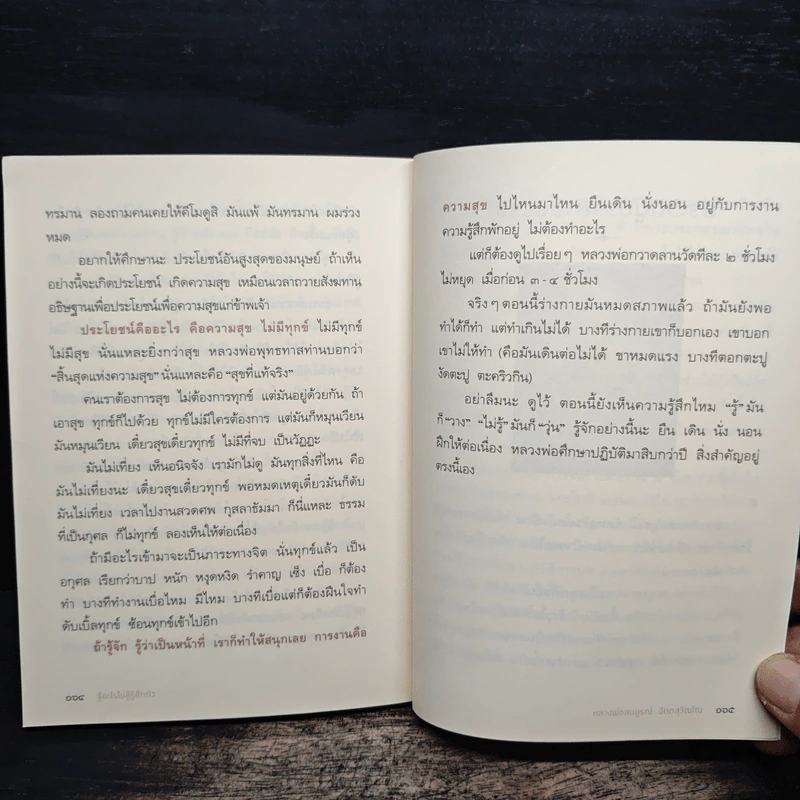 ทรมาน ลองถามคนเคยให้คีโมดูสิ มันแพ้ มันทรมาน ผมร่วง
หมด
อยากให้ศึกษานะ ประโยชน์อันสูงสุดของมนุษย์ ถ้าเห็น
อย่างนี้จะเกิดประโยชน์ เกิดความสุข เหมือนเวลาถวายสังฆทาน
อธิษฐานเพื่อประโยชน์เพื่อความสุขแก่ข้าพเจ้า
ประโยชน์คืออะไร คือความสุข ไม่มีทุกข์ ไม่มีทุกข์
ไม่มีสุข นั่นแหละยิ่งกว่าสุข หลวงพ่อพุทธทาสท่านบอกว่า
“สิ้นสุดแห่งความสุข” นั่นแหละคือ “สุขที่แท้จริง”
คนเราต้องการสุข ไม่ต้องการทุกข์ แต่มันอยู่ด้วยกัน ถ้า
เอาสุข ทุกข์ก็ไปด้วย ทุกข์ไม่มีใครต้องการ แต่มันก็หมุนเวียน
มันหมุนเวียน เดี๋ยวสุขเดี๋ยวทุกข์ ไม่มีที่จบ เป็นวัฏฏะ
มันไม่เที่ยง เห็นอนิจจัง เรามักไม่ดู มันทุกสิ่งที่ไหน คือ
มันไม่เที่ยงนะ เดี๋ยวสุขเดี๋ยวทุกข์ พอหมดเหตุเดี๋ยวมันก็ดับ
มันไม่เที่ยง เวลาไปงานสวดศพ กุสลาธัมมา ก็นี่แหละ ธรรม
ที่เป็นกุศล ก็ไม่ทุกข์ ลองเห็นให้ต่อเนื่อง
ถ้ามีอะไรเข้ามาจะเป็นภาระทางจิต นั่นทุกข์แล้ว เป็น
อกุศล เรียกว่าบาป หนัก หงุดหงิด รำคาญ เซ็ง เบื่อ ก็ต้อง
ทำ บางทีทำงานเบื่อไหม มีไหม บางทีเบื่อแต่ก็ต้องฝืนใจทำ
ดับเบิ้ลทุกข์ ซ้อนทุกข์เข้าไปอีก
ถ้ารู้จัก รู้ว่าเป็นหน้าที่ เราก็ทำให้สนุกเลย การงานคือ
๑๖๔ รู้อะไรไม่สู้รู้สึกตัว
ความสุข ไปไหนมาไหน ยืนเดิน นั่งนอน อยู่กับการงาน
ความรู้สึกพักอยู่ ไม่ต้องทำอะไร
แต่ก็ต้องดูไปเรื่อยๆ หลวงพ่อกวาดลานวัดทีละ ๒ ชั่วโมง
ไม่หยุด เมื่อก่อน ๓-๔ ชั่วโมง
จริงๆ ตอนนี้ร่างกายมันหมดสภาพแล้ว ถ้ามันยังพอ
ทำได้ก็ทำ แต่ทำเกินไม่ได้ บางทีร่างกายเขาก็บอกเอง เขาบอก
เขาไม่ให้ทำ (คือมันเดินต่อไม่ได้ ขาหมดแรง บางทีตอกตะปู
งัดตะปู ตะคริวกิน)
อย่าลืมนะ ดูไว้ ตอนนี้ยังเห็นความรู้สึกไหม “รู้” มัน
ก็ “วาง” “ไม่รู้” มันก็ “วุ่น” รู้จักอย่างนี้นะ ยืน เดิน นั่ง นอน
ฝึกให้ต่อเนื่อง หลวงพ่อศึกษาปฏิบัติมาสิบกว่าปี สิ่งสำคัญอยู่
ตรงนี้เอง
หลวงพ่อสมบูรณ์ ฉัตตสุวัณโณ ๑๖๕